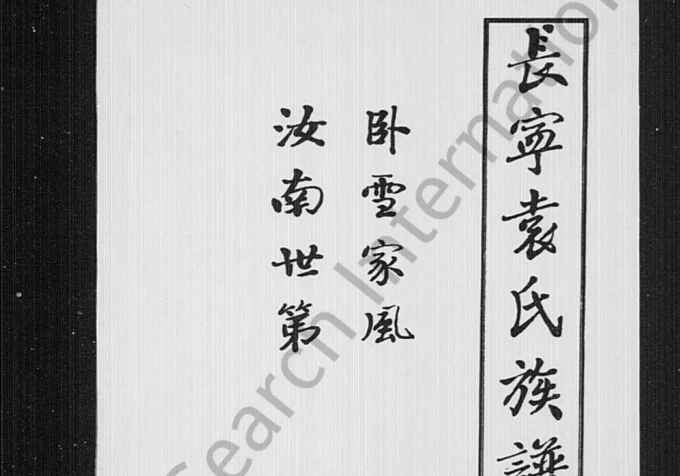 長寧袁氏族譜
卧雪家風
汝南世第
Search International